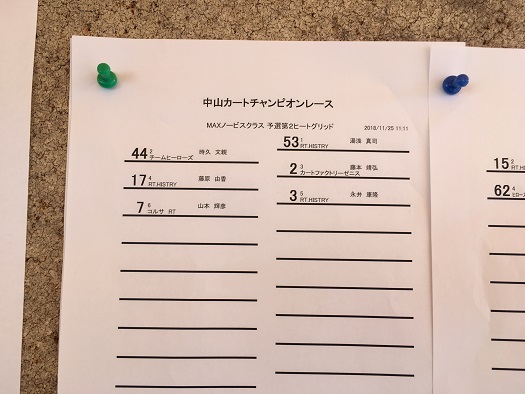 中山カートチャンピオンレース
MAXノービスクラス 予選第2ヒートグリッド 2018/11/25 11:11
53 1 湯浅 真司
RT.HISTRY
44 2 持久 文暁
チームヒーローズ
2 3 藤本 靖弘
カートファクトリーゼニス
17 4 藤原 由香
RT.HISTRY
3 5 永井 康隆
RT.HISTRY
7 6 山本 輝彦
コルサ RT
15 2
62 4
ヒロース